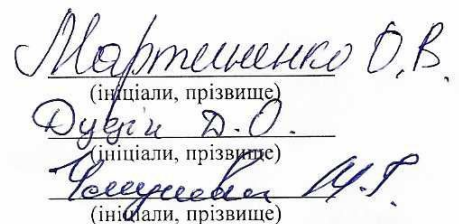 Мартиненко О.В.
(ініціали, прізвище)
Д.О.
(ініціали, прізвище)
(ініціали, прізвище)